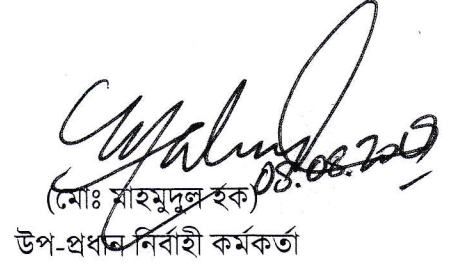 08.08.2019
(মোঃ মাহমুদুল হক)
উপ-প্রধান নির্বাহী কর্মকর্তা